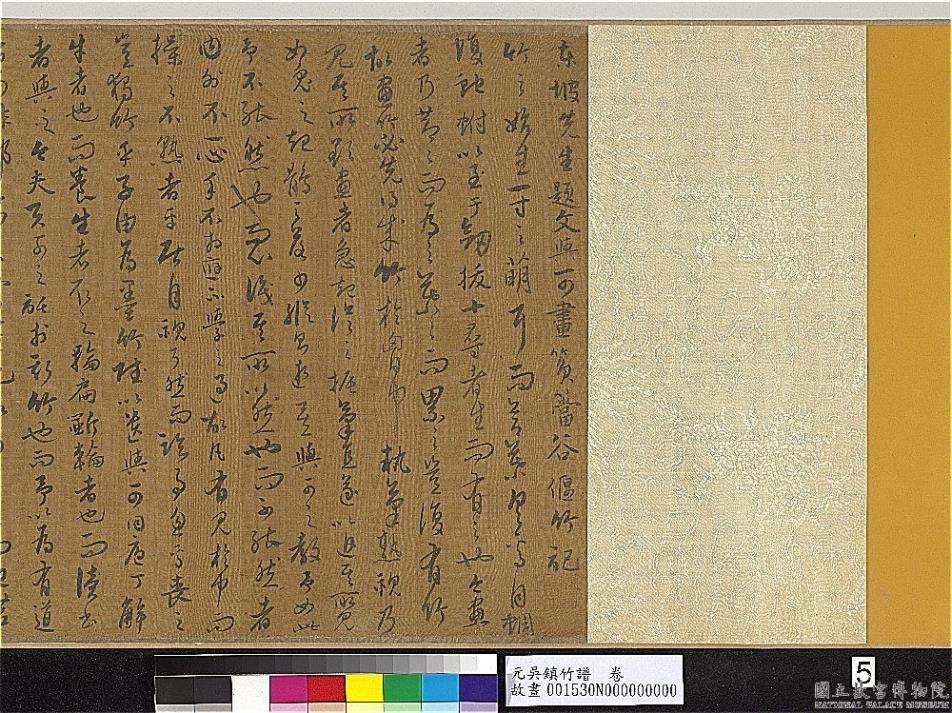 東坡先生題文與可畫篔簹谷偃竹記
竹之始生一寸之萌耳而節葉具焉自蜩
復蛇蚹以至于劍拔十尋者生而有之也今畫
者乃節節而為之葉葉而累之豈復有竹
故畫竹必先得成竹於胸中執筆熟視乃
見其所欲畫者急起從之振筆直遂以追其所見
如兔之起鶻之落少縱則逝矣與可之教予如此
予不能然也而心識其所以然也而不能然者
内外不一心手不相應不學之過故凡有見於中而
操之不熟者平居自視了然而臨事忽焉喪之
豈獨竹乎子由為墨竹賦以遺與可曰庖丁解
牛者也而養生者取之輪扁斲輪者也而讀書
者與之今夫子之託於斯竹也而予以為有道
元吳鎮竹譜 卷
故畫 001530N000000000
5
國立故宮博物院
NATIONAL PALACE MUSEUM